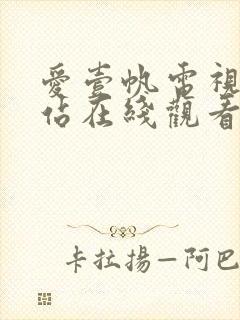 愛壹帆電視
佔在綫觀看
卡拉揚—阿巴